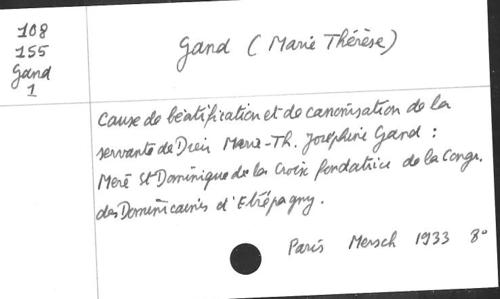 108
155
Gand
1
Gand (Marie Thérèse)
Cause de béatification et de canonisation de la
servante de Dieu Marie-Th. Joséphine Gand :
Mère St Dominique de la Croix fondatrice de la Congr.
des Dominicaines d'Etrépagny.
Paris Mersch 1933 8°